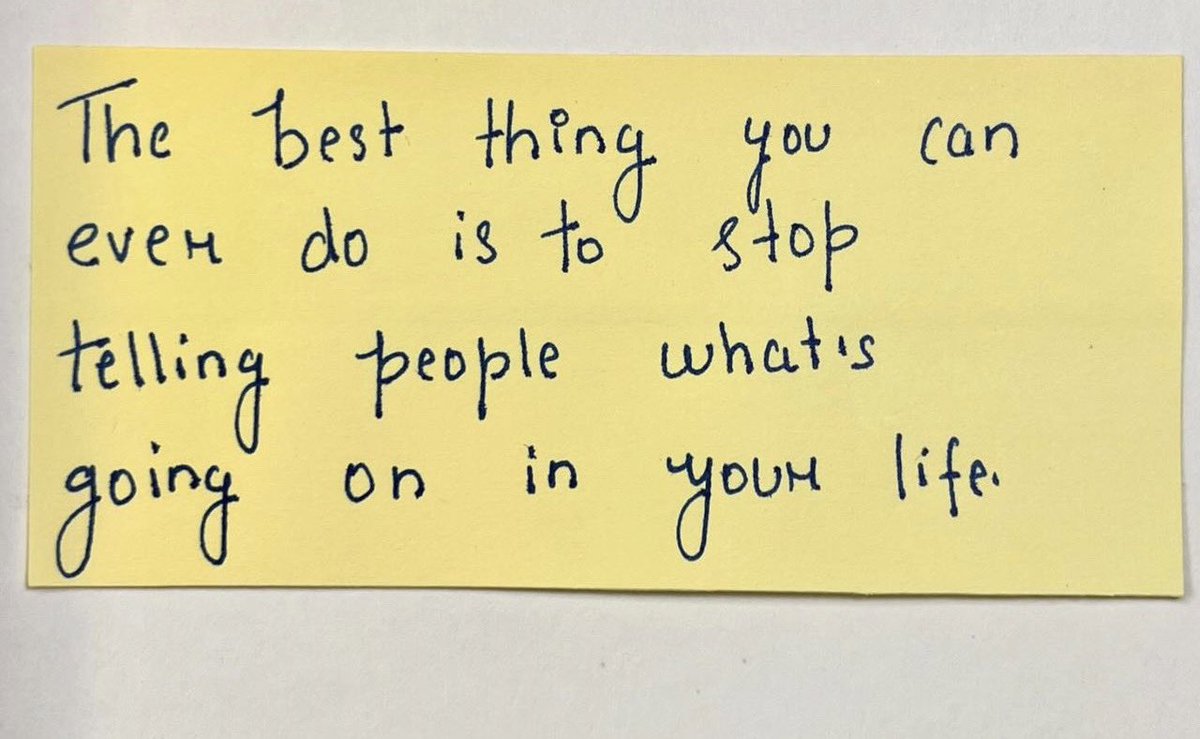 The best thing you can
ever do is to stop
telling people what's
going on in your life.